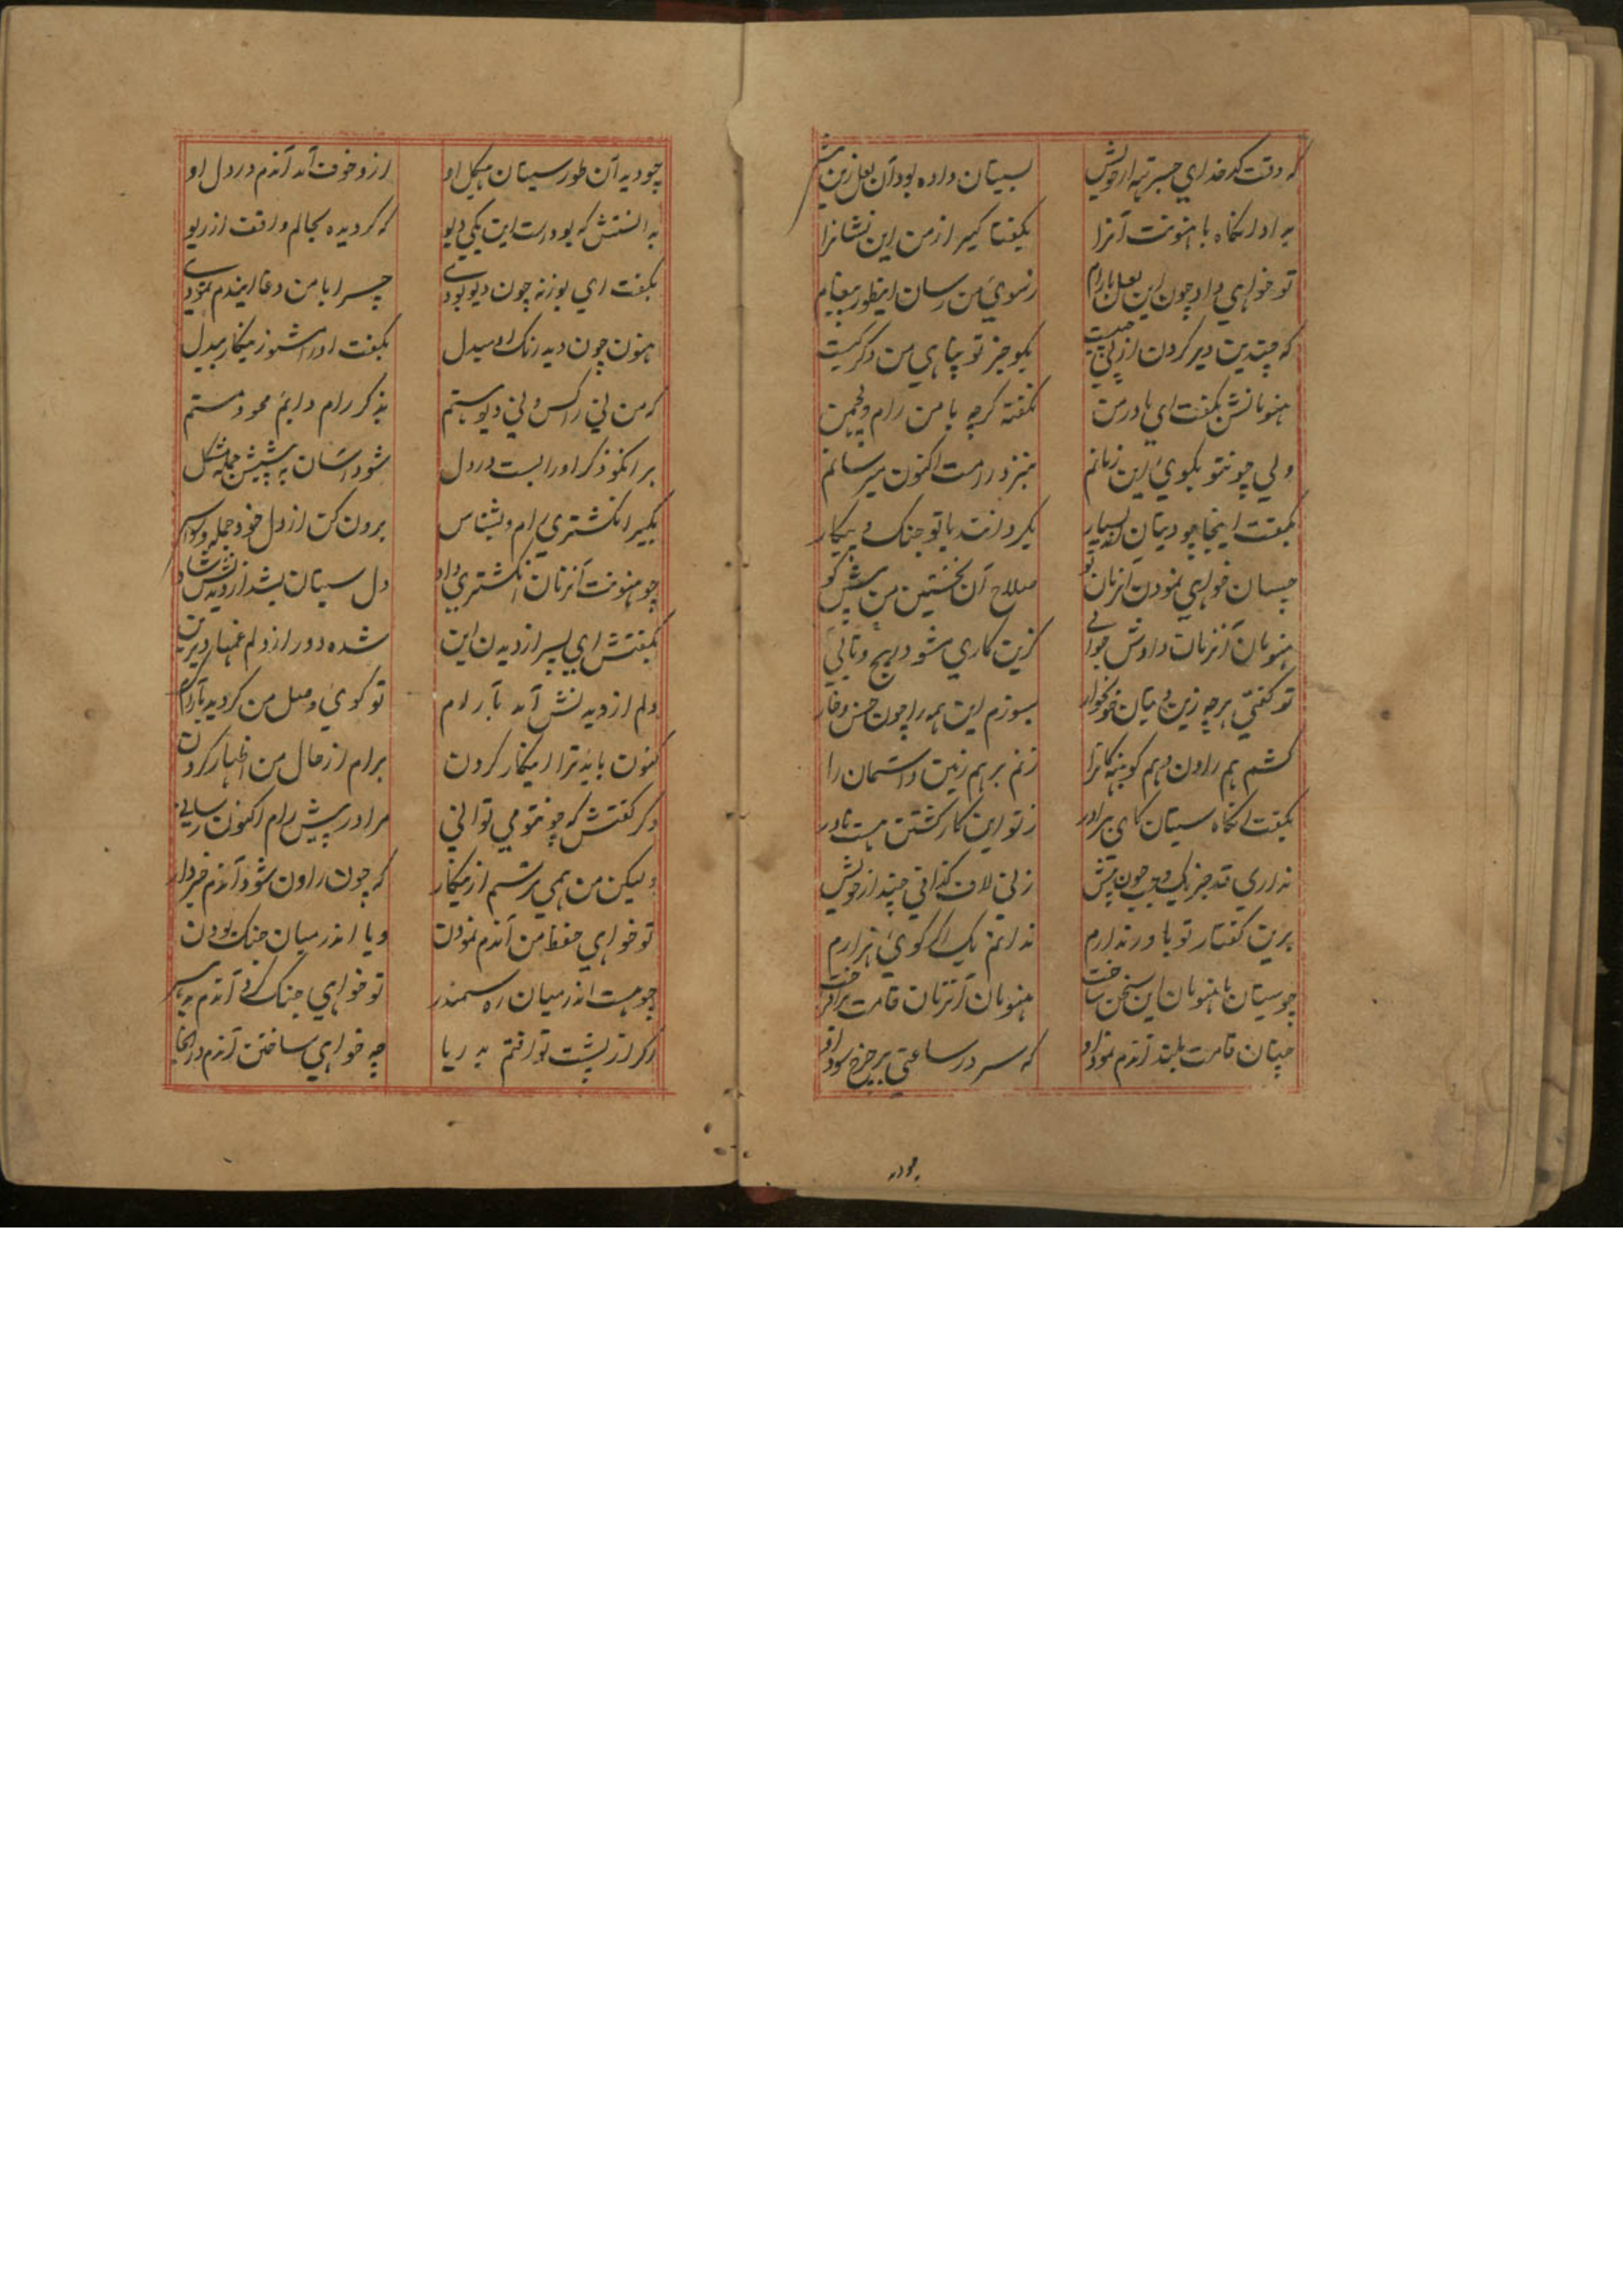 که وقت کدخدای جسرتهه ازخویش بسیتان داده بود آن لعل زین پیش
بداد انگاه با هنونت آنرا بگفتا گیر از من این نشانرا
تو خواهی داد چون این لعل بارام زسوی من رسان اینطور پیغام
که چندین دیر کردن از پی چیست بگو جز تو پناهی من دگر کیست
هنونانش بگفت ای مادر من نگفته گرچه با من رام و لچمن
ولی چونتو بگوی این زمانم بنزد رامت اکنون میرسانم
بگفت اینجا چو دیتان بسیار بگردانت باتو جنک و پیکار
چسان خواهی نمودن انزمان تو صلاح آن نخستین من پیش گو
هنونان آنزمان دادش جوابی کزین کاری مشو در پیچ و تابی
تو گفتی هرچه زین دیتان خونخوار بسوزم این همه را چون خس و خار
کشم هم راون و هم کوینه‌کانرا زنم برهم زمین و آسمان را
بگفت انگاه سیتان کای برادر زتو این کار کشتن هست نادر
نداری قد جز یک وجب چون پیش زنی لاف گذافی چند از خویش
برین گفتار تو باور ندارم ندانم یک اگر گوی هزارم
چو سیتان با هنونان این سخن ساخت هنونان آنزمان قامت برافراخت
چنان قامت بلند آندم نمود او که سر در ساعتی بر چرخ سود او
چو دید
چو دید آن طور سیتان هیکل او ازو خوف آمد آندم در دل او
بدانستش که بودست این یکی دیو که گردیده بحالم واقف از ریو
بگفت ای بوزنه چون دیو بودی چرا با من دغا ایندم نمودی
هنون چون دید رنک او مبدل بگفت او را مشو زینکار بیدل
که من نی راکس و نی دیو هستم بذکر رام دایم محو و مستم
هر انکو ذکر او را بست در دل شود آسان به پیشش جمله مشکل
بگیر انگشتری رام و بشناس برون کن از دل خود جمله وسواس
چو هنونت آنزمان انگشتری داد دل سیتان بشد از دیدنش شاد
بگفتش ای پسر از دیدن این شده دور از دلم غمهای دیرین
دلم از دیدنش آمد بآرام تو گوی وصل من گردید بآرام
کنون باید ترا اینکار کردن برام از حال من اظهار کردن
دگر گفتش که چونتو می توانی مرا در پیش رام اکنون رسانی
ولیکن من همی ترسم ازینکار که چون راون شود آندم خبردار
تو خواهی حفظ من آندم نمودن ویا اندر میان جنک بودن
چو هست اندر میان ره سمندر تو خواهی جنک کرد آندم
اگر از پشت تو افتم بدریا چه خواهی ساختن آندم در انجا